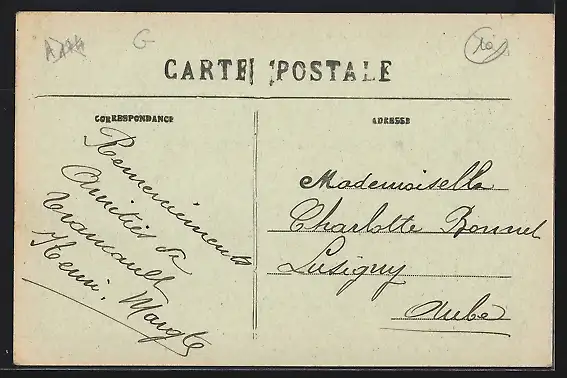 G
10
CARTE POSTALE
CORRESPONDANCE
ADRESSE
Remerciements
Amitiés de
Henri, Margte
Mademoiselle
Charlotte Bonnet
Lusigny
Aube